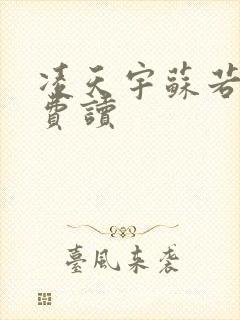 凌天宇蘇若
費讀
臺風來襲